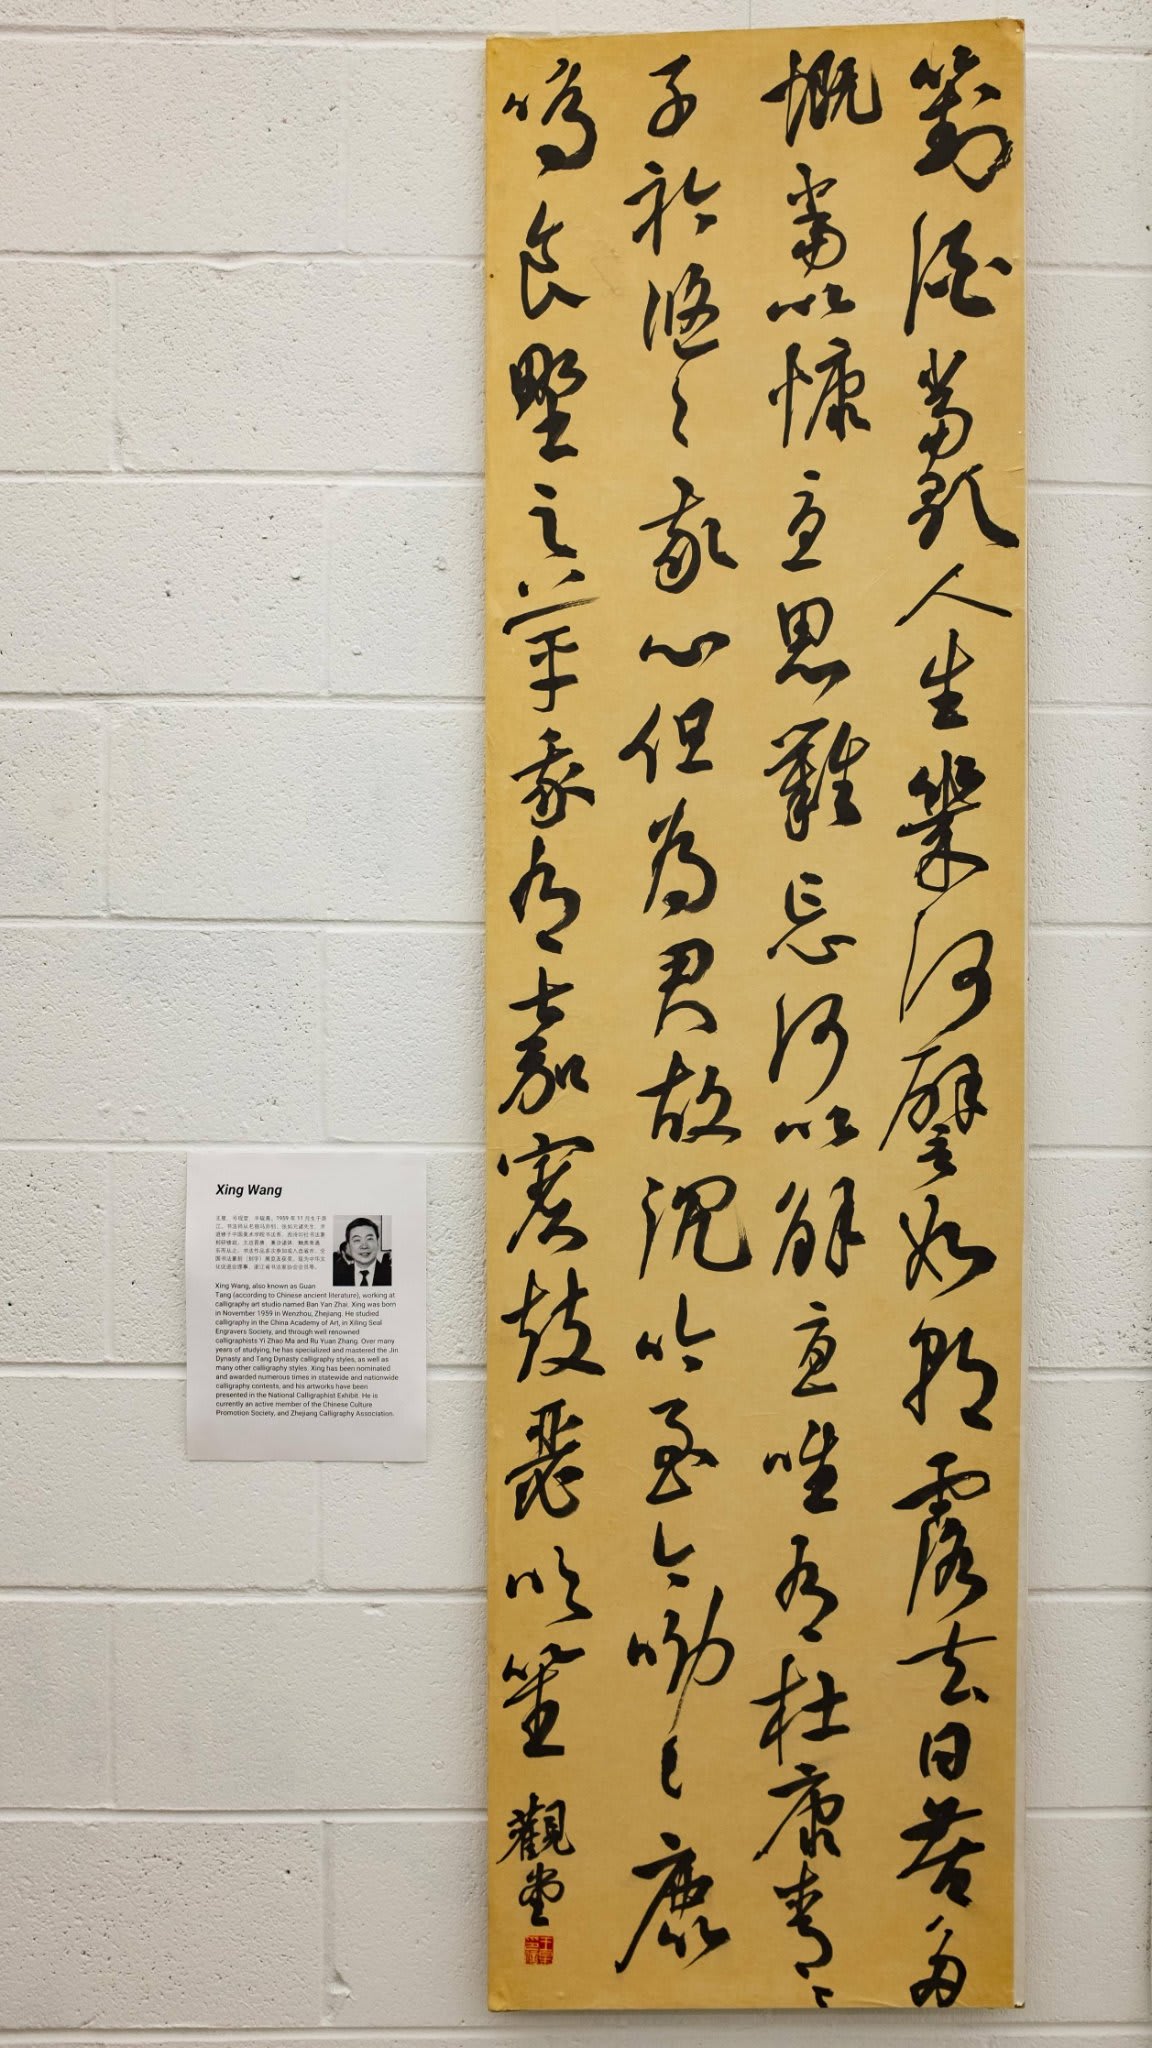 對酒當歌人生幾何譬如朝露去日苦多
慨當以慷憂思難忘何以解憂唯有杜康青〻
子衿悠〻我心但為君故沉吟至今呦〻鹿
鳴食野之苹我有嘉賓鼓瑟吹笙
觀堂
Xing Wang
1959 年 11 月生于浙
江。书法师从名师马亦钊、张如元诸先生，并
进修于中国美术学院书法系、西泠印社书法篆
刻研修班。
书法作品多次参加或入选省市、全
国书法篆刻（刻字）展
现为中华文
化促进会理事、浙江省书法家协会会员等。
Xing Wang, also known as Guan
Tang (according to Chinese ancient literature), working at
calligraphy art studio named Ban Yan Zhai. Xing was born
in November 1959 in Wenzhou, Zhejiang. He studied
calligraphy in the China Academy of Art, in Xiling Seal
Engravers Society, and through well renowned
calligraphists Yi Zhao Ma and Ru Yuan Zhang. Over many
years of studying, he has specialized and mastered the Jin
Dynasty and Tang Dynasty calligraphy styles, as well as
many other calligraphy styles. Xing has been nominated
and awarded numerous times in statewide and nationwide
calligraphy contests, and his artworks have been
presented in the National Calligraphist Exhibit. He is
currently an active member of the Chinese Culture
Promotion Society, and Zhejiang Calligraphy Association.